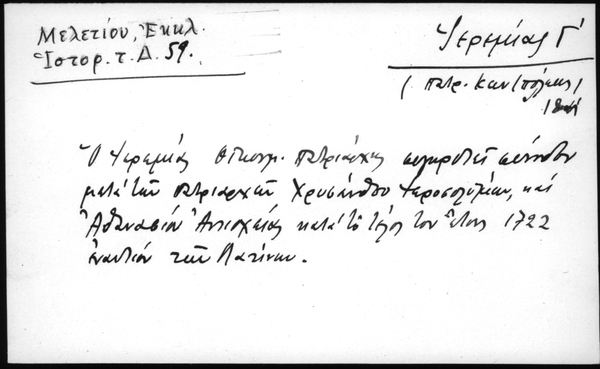 Μελετίου, Ἐκκλ.
Ἱστορ. τ. Δ. 59.
Ἱερεμίας Γ΄
( Πατρ. Κων/πόλεως )
Ὁ Ἱερεμίας Οἰκουμ. Πατριάρχης συγκροτεῖ σύνοδον
μετὰ τῶν πατριαρχῶν Χρυσάνθου Ἱεροσολύμων, καὶ
Ἀθανασίου Ἀντιοχείας κατὰ τὸ τέλος τοῦ ἔτους 1722
ἐναντίον τῶν Λατίνων.